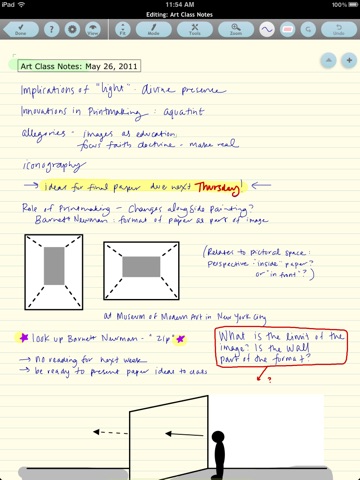 iPad
11:54 AM
Editing: Art Class Notes
Done
View
Fit
Mode
Tools
Zoom
Art Class Notes: May 26, 2011
Implications of "light" - divine presence
Innovations in Printmaking: aquatint
allegories - images as education,
focus faith doctrine - make real
iconography
→ ideas for final paper due next Thursday! ←
Role of Printmaking - Changes alongside Painting?
Barnett Newman: format of paper as part of image
(Relates to pictorial space:
perspective "inside" paper?
or "in front"?)
at Museum of Modern Art in New York City
look up Barnett Newman - "Zip"
What is the limit of the
image? Is the wall
part of the format?
→ no reading for next week
→ be ready to present paper ideas to class
?